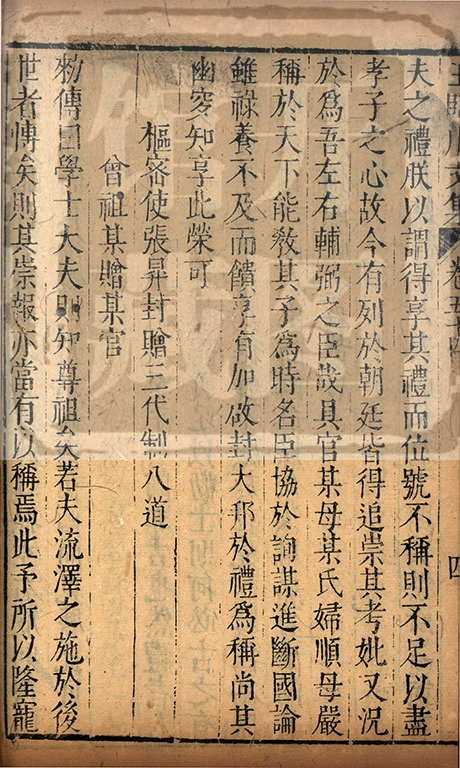 王臨川文集 卷五十四 四
夫之禮朕以謂得享其禮而位號不稱則不足以盡
孝子之心故今有列於朝廷皆得追崇其考妣又況
於爲吾左右輔弼之臣哉具官某母某氏婦順母嚴
稱於天下能敎其子爲時名臣協於詢謀進斷國論
雖祿養不及而饋享有加啟封大邦於禮爲稱尚其
幽穾知享此榮可
樞密使張昪封贈三代制八道
曾祖某贈某官
勑傳曰學士大夫則知尊祖矣若夫流澤之施於後
世者愽矣則其崇報亦當有以稱焉此予所以隆寵